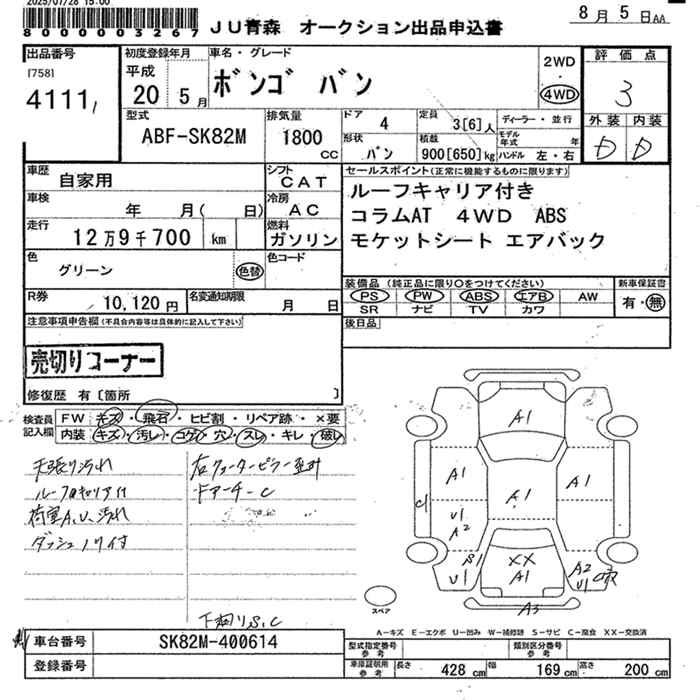 2025/07/28 15:00
8000003267
JU青森 オークション出品申込書
8月5日AA
出品番号
[758]
4111
初度登録年月
平成
20 5月
車名・グレード
ボンゴ バン
2WD
・
4WD
評価点
3
型式
ABF-SK82M
排気量
1800
cc
ドア
4
定員
3[6]人
ディーラー・並行
モデル年式 年
形状
バン
積載
900[650]kg
ハンドル 左・右
外装 内装
D D
車歴
自家用
シフト
CAT
車検
年 月( 日)
冷房
AC
走行
12万9千700 km
燃料
ガソリン
色
グリーン
色替
色コード
セールスポイント(正常に機能するものに限ります)
ルーフキャリア付き
コラムAT 4WD ABS
モケットシート エアバック
R券
10,120円
名変通知期限
月 日
装備品(純正品に限り○をつけてください)
PS PW ABS エアB AW
SR ナビ TV カワ
新車保証書
有・無
後日品
注意事項申告欄(不具合内容等は具体的に記入して下さい)
売切りコーナー
修復歴 有〔箇所 〕
検査員記入欄
FW キズ・飛石・ヒビ割・リペア跡・×要
内装 キズ・汚レ・コゲ・穴・スレ・キレ・破レ
天張り汚れ
ルーフキャリア付
荷室A、U、汚れ
ダッシュノリ付
右クォーターピラー歪み
ドアーチーC
下廻りS、C
A1
A1
A1
A1
C1
U1
A2
S1
U1
XX
A1
A2
U1
A3
スペア
A-キズ E-エクボ U-凹み W-補修跡 S-サビ C-腐食 XX-交換済
車台番号
SK82M-400614
登録番号
型式指定番号
参考
類別区分番号
参考
車庫証明用
参考
長さ
428 cm
幅
169 cm
高さ
200 cm